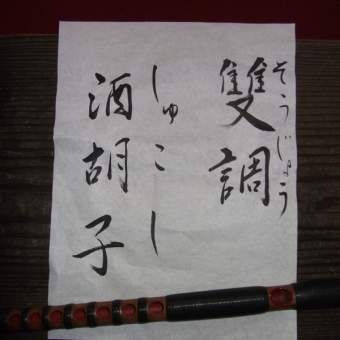 そうじょう
雙調
しゅこし
酒胡子